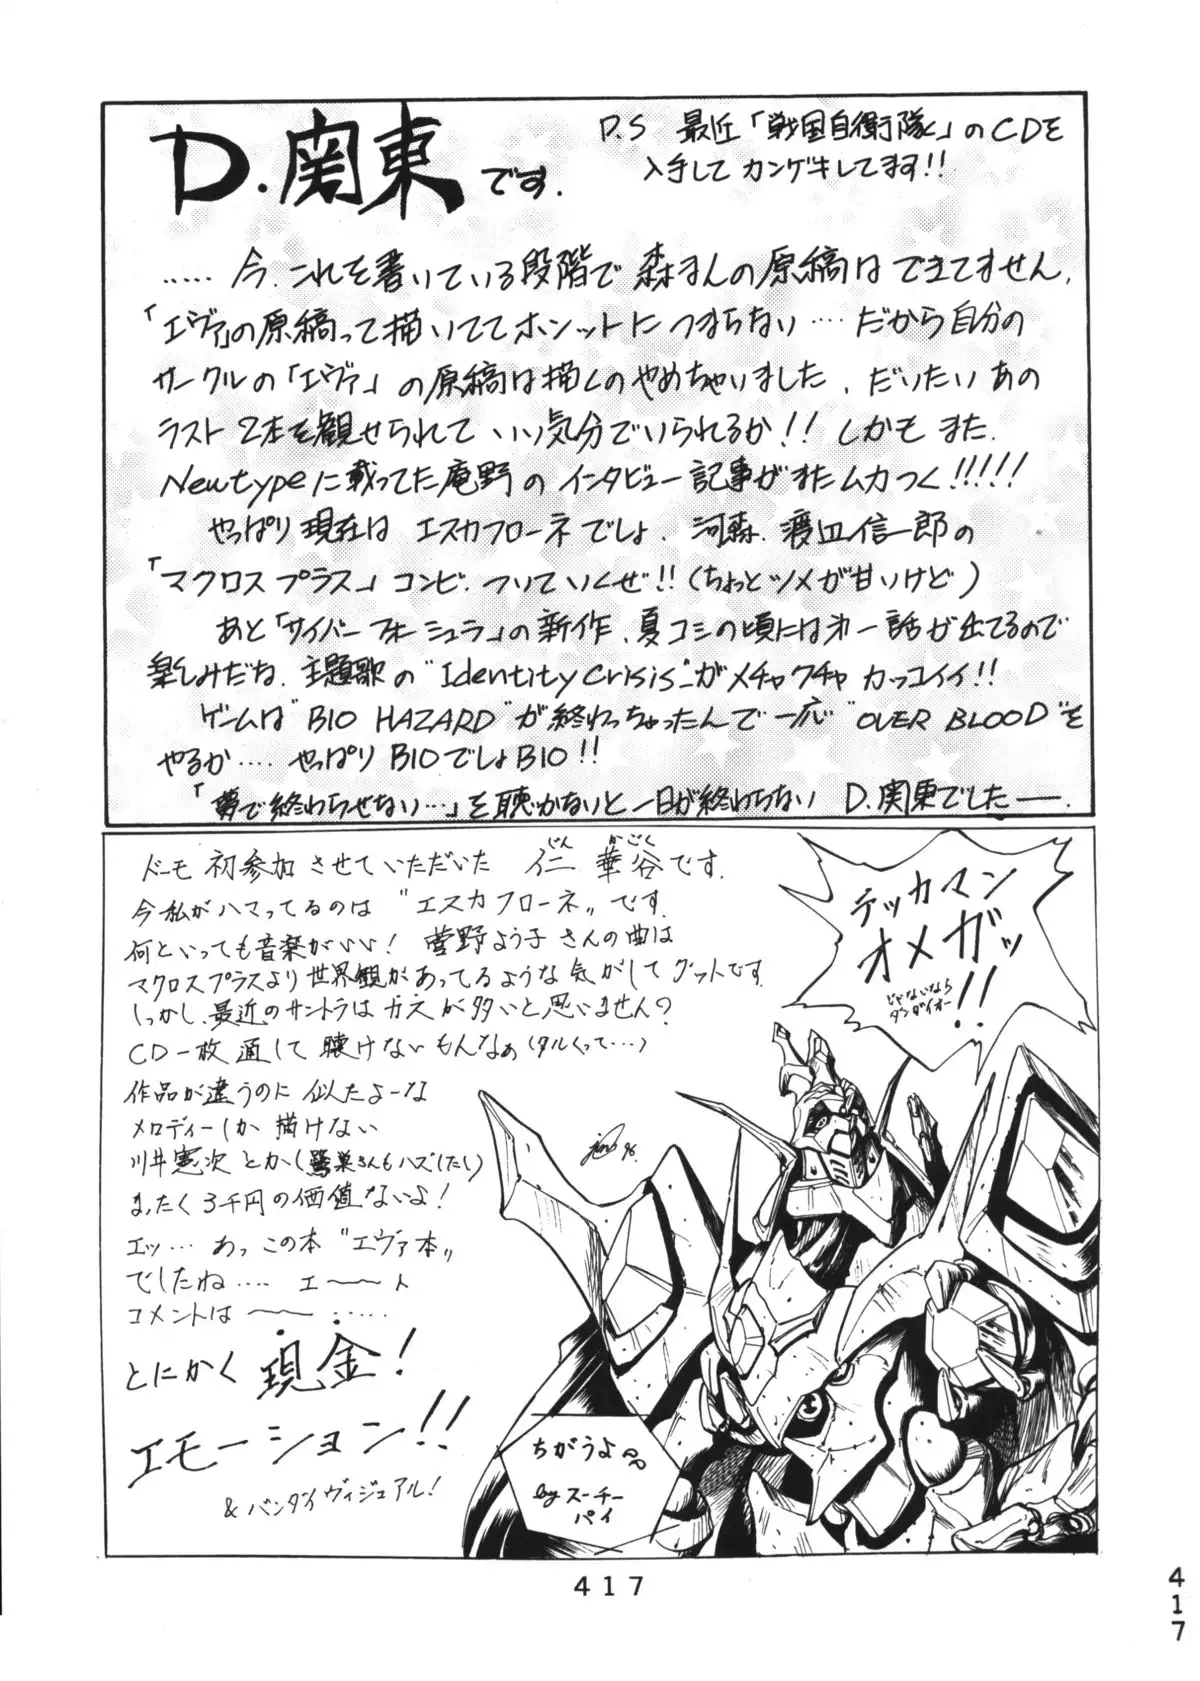 D.関東です.
P.S 最近「戦国自衛隊」のCDを
入手して カンゲキしてます!!
..... 今、これを書いている段階で 森さんの原稿は できてません.
「エヴァ」の原稿って描いてて ホンットにつまらない…. だから自分の
サークルの「エヴァ」の原稿は描くのやめちゃいました. だいたい あの
ラスト2本を観せられて いい気分でいられるか!! しかも また.
Newtypeに載ってた庵野の インタビュー記事が またムカつく!!!!!
やっぱり 現在は エスカフローネでしょ. 河森. 渡辺信一郎の
「マクロスプラス」コンビ. ついていくぜ!! (ちょっとツメが甘いけど)
あと「サイバーフォーミュラ」の新作、夏コミの頃には第一話が出てるので
楽しみだね. 主題歌の"Identity Crisis"がメチャクチャ カッコイイ!!
ゲームは"BIO HAZARD"が終わっちゃったんで一応"OVER BLOOD"を
やるか.... やっぱりBIOでしょBIO!!
「夢で終わらせない…」を聴かないと一日が終わらない D.関東でした――.
ドーモ 初参加させていただいた 仁 華谷です.
じん かごく
今私がハマってるのは "エスカフローネ"です.
何といっても音楽がいい! 菅野よう子さんの曲は
マクロスプラスより世界観があってるような気がしてグットです.
しっかし、最近のサントラはカスが多いと思いません?
CD一枚通して聴けないもんなぁ(タルくって…)
作品が違うのに 似たよーな
メロディーしか描けない
川井憲次とかし(鷺巣さんもハズしたし)
まったく3千円の価値ないよ!
エッ… あっ この本 "エヴァ本"
でしたね…. エ～～ト
コメントは ～～ .....
とにかく 現金!
エモーション!!
& バンダイヴィジュアル!
テッカマン
オメガッ
!!
じゃないなら
ダンガイオー
jin 96.
ちがうよ
by スーチー
パイ
417
417